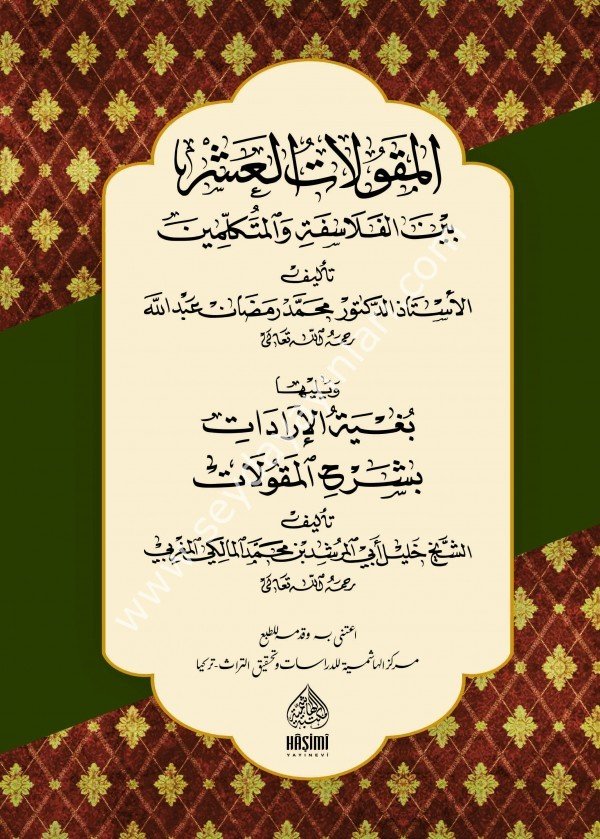 المقولات العشر
بين الفلاسفة والمتكلمين
تأليف
الأستاذ الدكتور محمد رمضان عبد الله
رحمه الله تعالى
ويليها
بُغية الإرادات
بشرح المقولات
تأليف
الشيخ خليل أبي المرشد بن محمد المالكي المغربي
رحمه الله تعالى
اعتنى به وقدمه للطبع
مركز الهاشمية للدراسات وتحقيق التراث-تركيا
HÂŞİMİ
YAYINEVİ